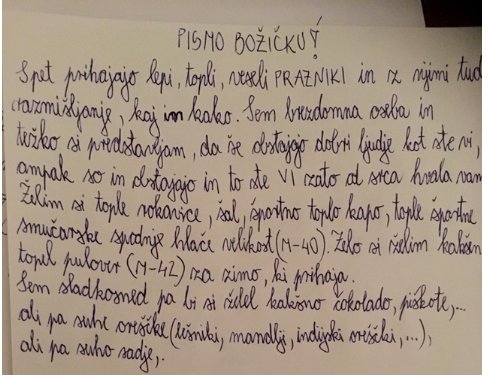 PISMO BOŽIČKU!
Spet prihajajo lepi, topli, veseli PRAZNIKI in z njimi tud
razmišljanje, kaj in kako. Sem brezdomna oseba in
težko si predstavljam, da še obstajajo dobri ljudje kot ste vi,
ampak so in obstajajo in to ste VI zato od srca hvala vam
Želim si tople rokavice, šal, športno toplo kapo, tople športne
smučarske spodnje hlače velikost (M-40). Zelo si želim kakšen
topel pulover (M-42) za zimo, ki prihaja.
Sem sladkosned pa bi si želel kakšno čokolado, piškote,...
ali pa suhe oreščke (lešniki, mandlji, indijski oreščki,...),
ali pa suho sadje,.